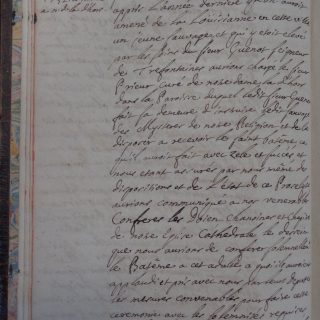 appris L'année dernière qu'on avoit
amené de La Louisianne en cette ville
un jeune sauvage, et qui y étoit elevé
par les soins du sieur Guenot seigneur
de Trefontaines aurions chargé le sieur
Prieur Curé de notre dame
dans la Paroisse duquel ledit sieur Guenot
fait sa demeure d'instruire ledit sauvage
des Mysteres de notre Religion et de le
disposer a recevoir le saint Batême ce
qu'il auroit fait avec zele et succes et
nous etant assurés par nous même des
dispositions et de L'Etat de ce Proselyte
aurions communiqué a nos venerables
Confreres les Doien, Chanoines et Chapitre
de notre Eglise Cathedrale le dessein
que nous aurions de conferer
le Batême a cet adulte a quoi ils auroient
applaudi et pris avec nous
les mesures convenables pour faire cette
ceremonie avec les solemnités requises